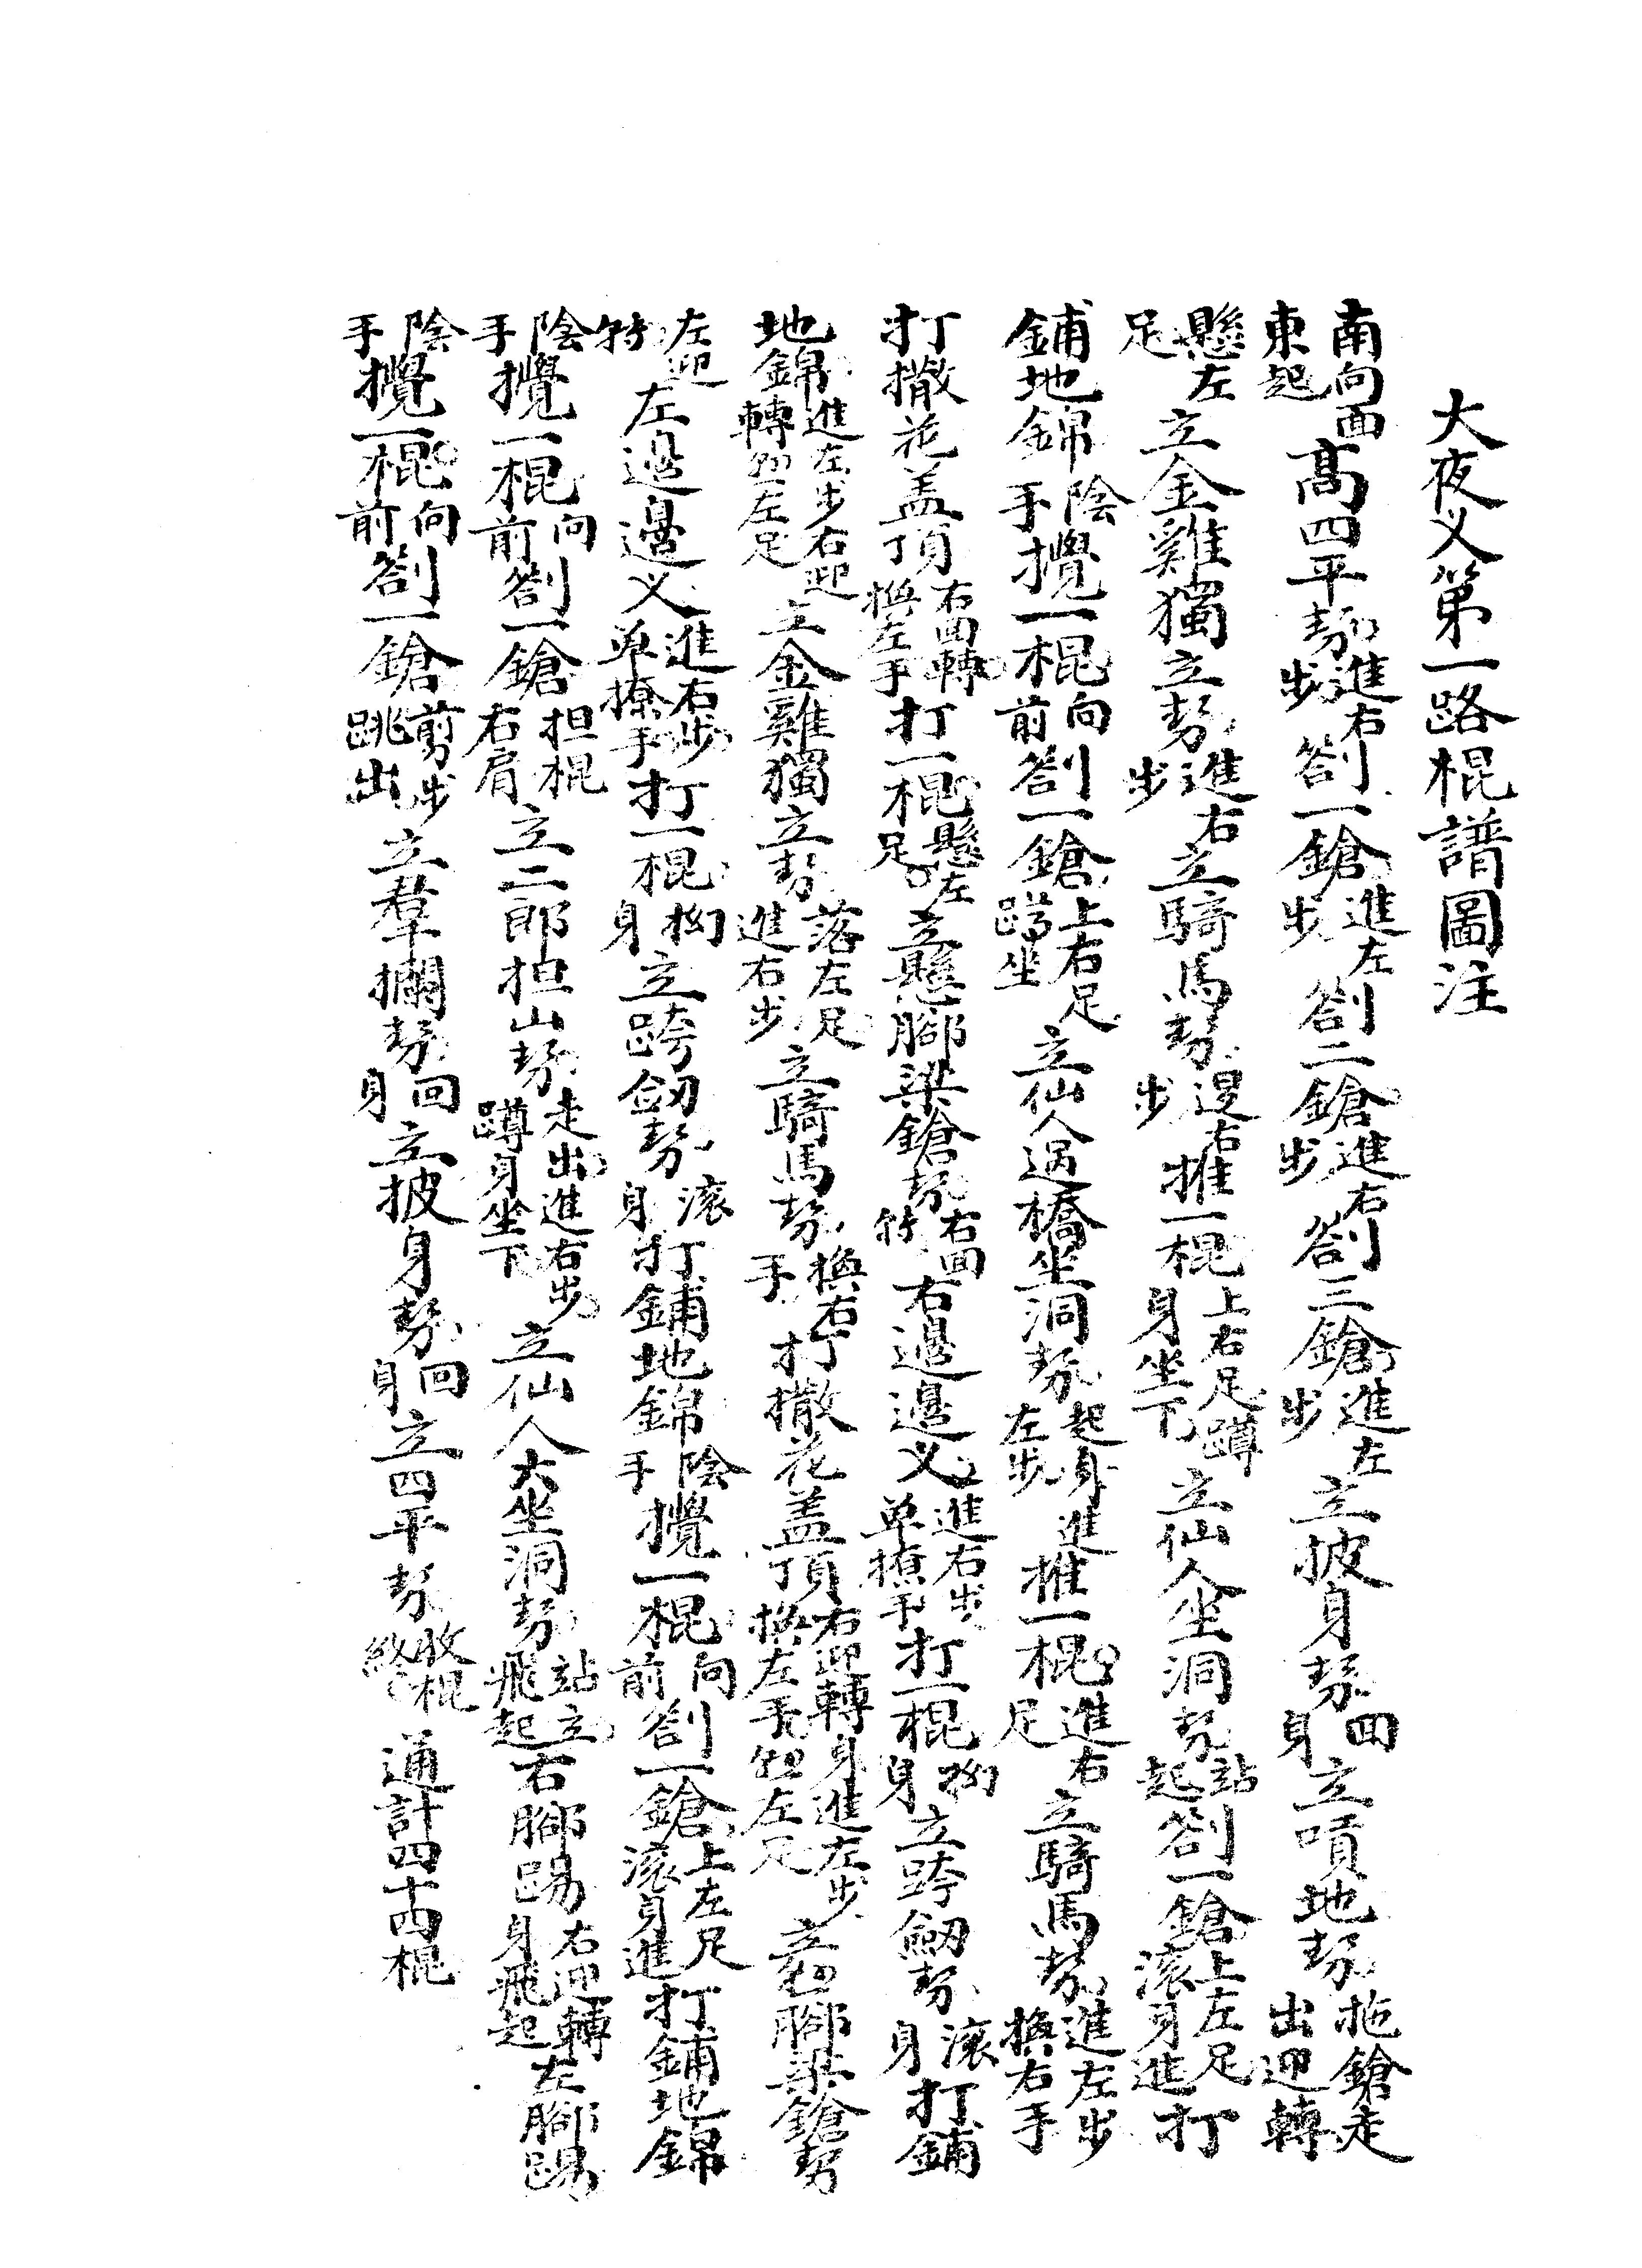 大夜乂第一路棍譜圖注
南向面東起高四平勢進右步劄一鎗進左步劄二鎗進右步劄三鎗進左步立披身勢回身立噴地勢拖鎗走出迎轉
懸左足立金雞獨立勢進右步立騎馬勢退右步推一棍上右足蹲身坐下立仙人坐洞勢站起劄一鎗上左足滚身進打
鋪地錦陰手攪一棍向前劄一鎗上右足蹲坐立仙人過橋坐洞勢起身進左步推一棍進右足立騎馬勢進左步換右手
打撒花盖頂右回轉換左手打一棍懸左足立懸腳梁鎗勢右回轉右邊邊乂進右步单撩手打一棍拗身立跨劒勢滚身打鋪
地錦進左步右迎轉懸左足立金雞獨立勢落左足進右步立騎馬勢換右手打撒花盖頂右迎轉身進左步換左手懸左足立懸腳梁鎗勢
左迎轉左邊邊乂進右步单撩手打一棍拗身立跨劒勢滚身打鋪地錦陰手攪一棍向前劄一鎗上左足滚身進打鋪地錦
陰手攪一棍向前劄一鎗担棍右肩立二郎担山勢走出進右步蹲身坐下立仙人大坐洞勢站立飛起右腳踢右迎轉身飛起左腳踢
陰手攪一棍向前劄一鎗剪步跳出立羣攔勢回身立披身勢回身立四平勢收棍終通計四十四棍